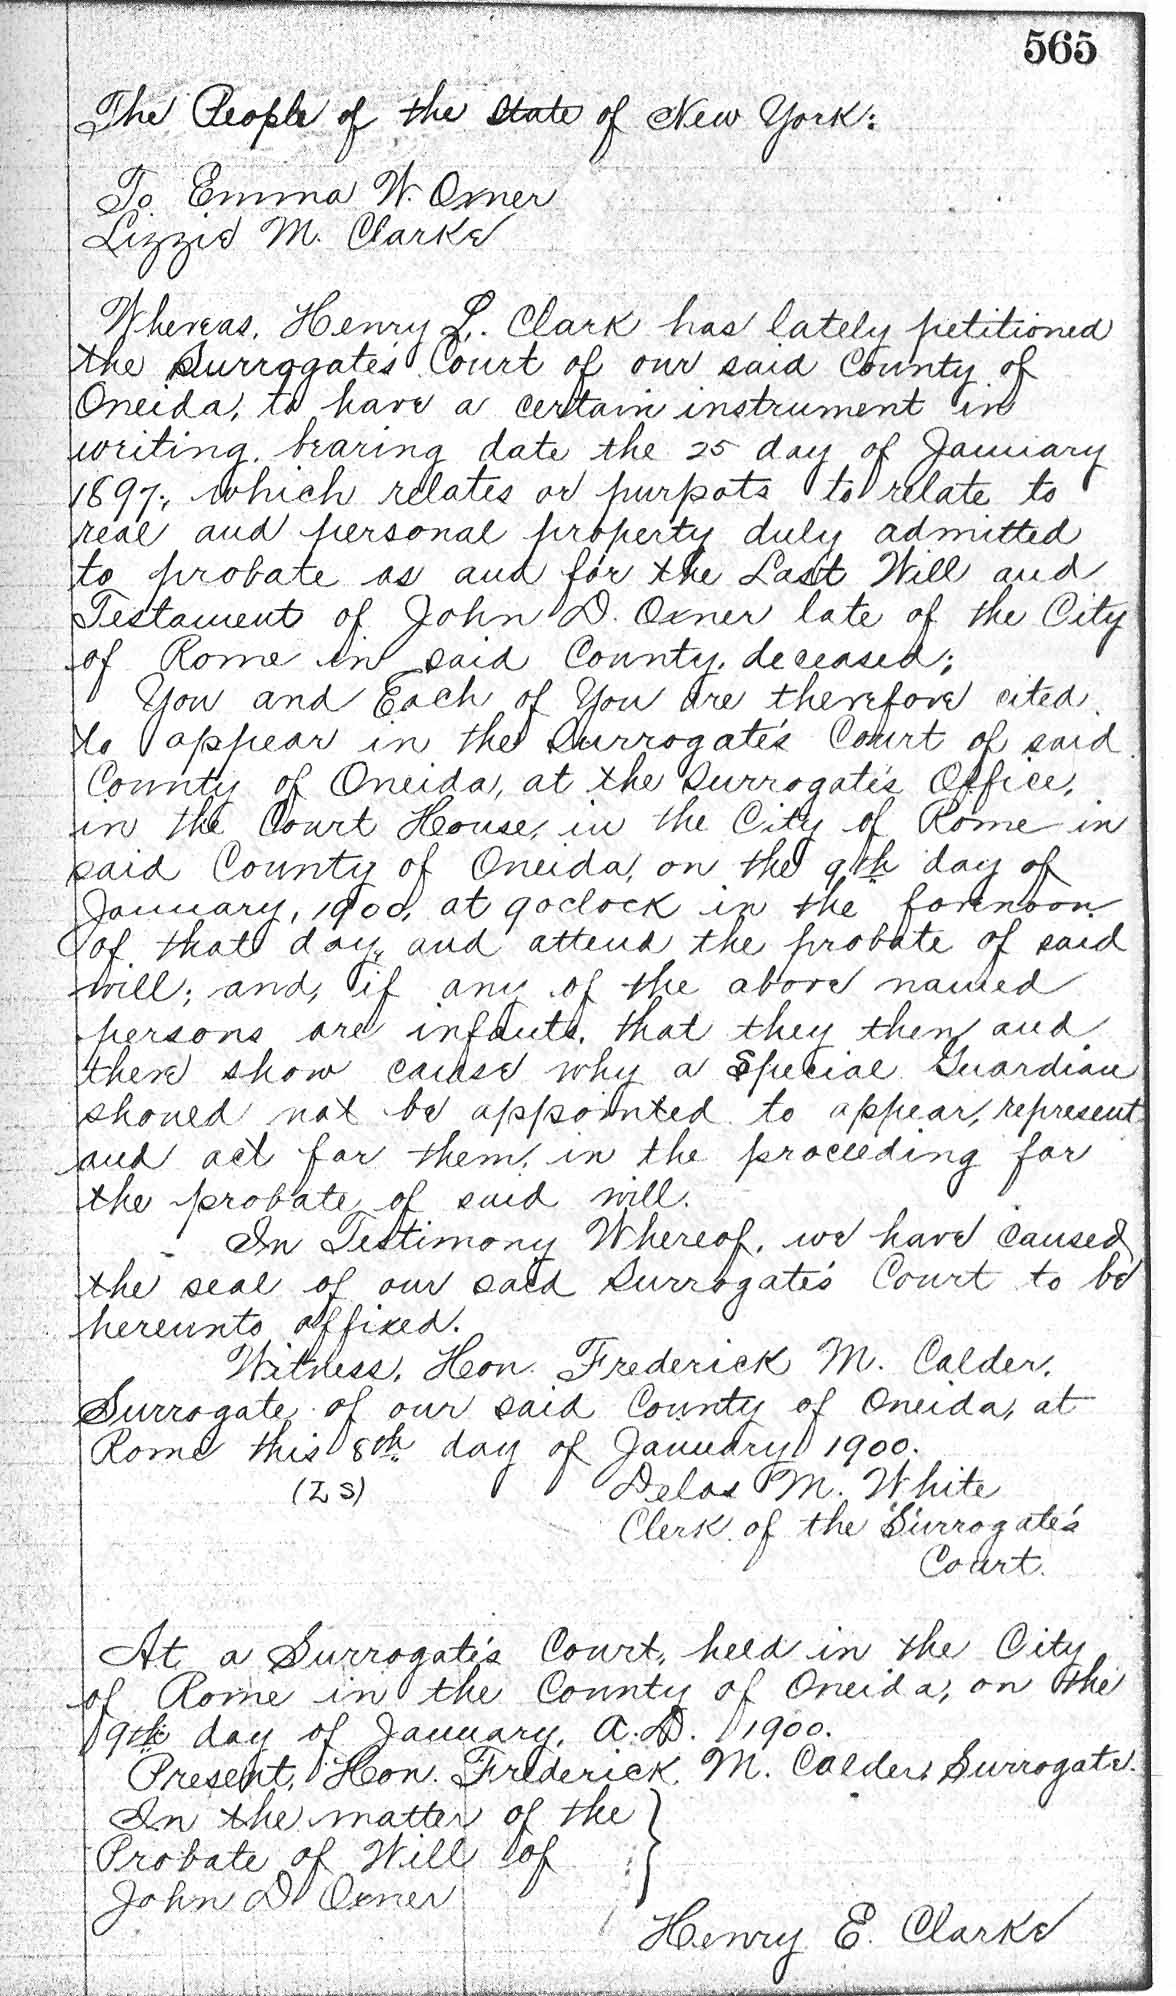 565
The People of the State of New York:
To Emma W. Oxner
Lizzie M. Clarke
Whereas, Henry L. Clark has lately petitioned
the Surrogate's Court of our said County of
Oneida, to have a certain instrument in
writing, bearing date the 25 day of January
1897, which relates or purpots to relate to
real and personal property duly admitted
to probate as and for the Last Will and
Testament of John D. Oxner late of the City
of Rome in said County, deceased;
You and Each of You are therefore cited
to appear in the Surrogate's Court of said
County of Oneida, at the Surrogate's Office,
in the Court House, in the City of Rome in
said County of Oneida, on the 9th day of
January, 1900, at 9 oclock in the forenoon
of that day, and attend the probate of said
will; and, if any of the above named
persons are infants, that they then and
there show cause why a Special Guardian
should not be appointed to appear, represent
and act for them, in the proceeding for
the probate of said will.
In Testimony Whereof, we have caused
the seal of our said Surrogate's Court to be
hereunto affixed.
Witness, Hon. Frederick M. Calder,
Surrogate of our said County of Oneida, at
Rome this 8th day of January 1900.
(L S) Delos M. White
Clerk of the Surrogate's
Court.
At a Surrogate's Court, held in the City
of Rome in the County of Oneida, on the
9th day of January, A.D. 1900.
Present, Hon. Frederick M. Calder, Surrogate.
In the matter of the
Probate of Will of
John D Oxner
Henry E. Clarke